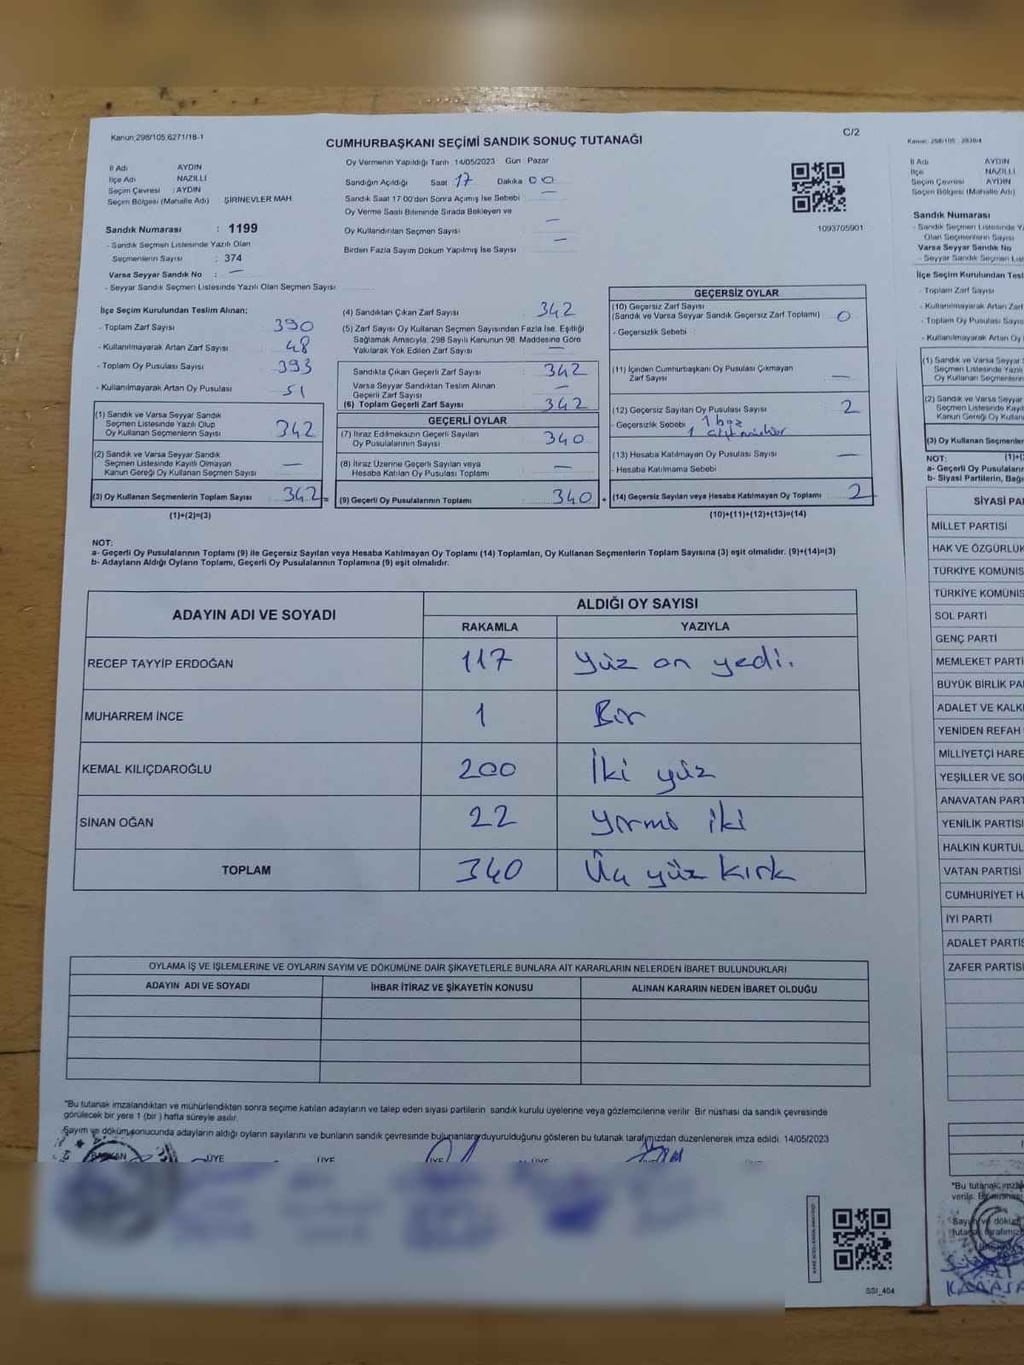 Kanun 298/105,6271/18-1
C/2
CUMHURBAŞKANI SEÇİMİ SANDIK SONUÇ TUTANAĞI
İl Adı AYDIN
İlçe Adı NAZİLLİ
Seçim Çevresi : AYDIN
Seçim Bölgesi (Mahalle Adı) ŞİRİNEVLER MAH
Sandık Numarası : 1199
- Sandık Seçmen Listesinde Yazılı Olan
Seçmenlerin Sayısı : 374
Varsa Seyyar Sandık No : —
- Seyyar Sandık Seçmen Listesinde Yazılı Olan Seçmen Sayısı
Oy Vermenin Yapıldığı Tarih 14/05/2023 Gün : Pazar
Sandığın Açıldığı Saat 17 Dakika 00
Sandık Saat 17:00'den Sonra Açılmış İse Sebebi —
Oy Verme Saati Bitiminde Sırada Bekleyen ve
Oy Kullandırılan Seçmen Sayısı —
Birden Fazla Sayım Döküm Yapılmış İse Sayısı —
1093705901
İlçe Seçim Kurulundan Teslim Alınan:
- Toplam Zarf Sayısı 390
- Kullanılmayarak Artan Zarf Sayısı 48
- Toplam Oy Pusulası Sayısı 393
- Kullanılmayarak Artan Oy Pusulası 51
(1) Sandık ve Varsa Seyyar Sandık
Seçmen Listesinde Yazılı Olup
Oy Kullanan Seçmenlerin Sayısı 342
(2) Sandık ve Varsa Seyyar Sandık
Seçmen Listesinde Kayıtlı Olmayan
Kanun Gereği Oy Kullanan Seçmen Sayısı —
(3) Oy Kullanan Seçmenlerin Toplam Sayısı 342 =
(1)+(2)=(3)
(4) Sandıktan Çıkan Zarf Sayısı 342
(5) Zarf Sayısı Oy Kullanan Seçmen Sayısından Fazla İse, Eşitliği
Sağlamak Amacıyla, 298 Sayılı Kanunun 98. Maddesine Göre
Yakılarak Yok Edilen Zarf Sayısı —
Sandıkta Çıkan Geçerli Zarf Sayısı 342
Varsa Seyyar Sandıktan Teslim Alınan
Geçerli Zarf Sayısı —
(6) Toplam Geçerli Zarf Sayısı 342
GEÇERLİ OYLAR
(7) İtiraz Edilmeksizin Geçerli Sayılan
Oy Pusulalarının Sayısı 340
(8) İtiraz Üzerine Geçerli Sayılan veya
Hesaba Katılan Oy Pusulası Toplamı —
(9) Geçerli Oy Pusulalarının Toplamı 340 +
GEÇERSİZ OYLAR
(10) Geçersiz Zarf Sayısı
(Sandık ve Varsa Seyyar Sandık Geçersiz Zarf Toplamı) 0
- Geçersizlik Sebebi
(11) İçinden Cumhurbaşkanı Oy Pusulası Çıkmayan
Zarf Sayısı —
(12) Geçersiz Sayılan Oy Pusulası Sayısı 2
- Geçersizlik Sebebi 1 boş
1
(13) Hesaba Katılmayan Oy Pusulası Sayısı —
- Hesaba Katılmama Sebebi
(14) Geçersiz Sayılan veya Hesaba Katılmayan Oy Toplamı 2
(10)+(11)+(12)+(13)=(14)
NOT:
a- Geçerli Oy Pusulalarının Toplamı (9) ile Geçersiz Sayılan veya Hesaba Katılmayan Oy Toplamı (14) Toplamları, Oy Kullanan Seçmenlerin Toplam Sayısına (3) eşit olmalıdır. (9)+(14)=(3)
b- Adayların Aldığı Oyların Toplamı, Geçerli Oy Pusulalarının Toplamına (9) eşit olmalıdır.
ADAYIN ADI VE SOYADI ALDIĞI OY SAYISI
RAKAMLA YAZIYLA
RECEP TAYYİP ERDOĞAN 117 Yüz on yedi.
MUHARREM İNCE 1 Bir
KEMAL KILIÇDAROĞLU 200 İki yüz
SİNAN OĞAN 22 Yirmi iki
TOPLAM 340 Üç yüz kırk
OYLAMA İŞ VE İŞLEMLERİNE VE OYLARIN SAYIM VE DÖKÜMÜNE DAİR ŞİKAYETLERLE BUNLARA AİT KARARLARIN NELERDEN İBARET BULUNDUKLARI
ADAYIN ADI VE SOYADI İHBAR İTİRAZ VE ŞİKAYETİN KONUSU ALINAN KARARIN NEDEN İBARET OLDUĞU
"Bu tutanak imzalandıktan ve mühürlendikten sonra seçime katılan adayların ve talep eden siyasi partilerin sandık kurulu üyelerine veya gözlemcilerine verilir. Bir nüshası da sandık çevresinde
görülecek bir yere 1 (bir) hafta süreyle asılır.
Sayım ve döküm sonucunda adayların aldığı oyların sayılarını ve bunların sandık çevresinde bulunanlara duyurulduğunu gösteren bu tutanak tarafımızdan düzenlenerek imza edildi. 14/05/2023
BAŞKAN ÜYE ÜYE ÜYE ÜYE
SSI_404
İl Adı AYDIN
İlçe NAZİLLİ
Seçim Çevresi AYDIN
Seçim Bölgesi (Mahalle Adı)
Sandık Numarası
- Sandık Seçmen Listesinde
Olan Seçmenlerin Sayısı
Varsa Seyyar Sandık No
- Seyyar Sandık Seçmen Listesi
İlçe Seçim Kurulundan
- Toplam Zarf Sayısı
- Kullanılmayarak Artan Zarf
- Toplam Oy Pusulası Sayısı
- Kullanılmayarak Artan
(1) Sandık ve Varsa Seyyar
Seçmen Listesinde
Oy Kullanan
(2) Sandık ve Varsa
Seçmen Listesinde
Kanun Gereği Oy
(3) Oy Kullanan
NOT:
a- Geçerli Oy
b- Siyasi Partilerin,
SİYASİ
MİLLET PARTİSİ
HAK VE
TÜRKİYE
TÜRKİYE
SOL PARTİ
GENÇ PARTİ
MEMLEKET
BÜYÜK BİRLİK
ADALET VE
YENİDEN REFAH
MİLLİYETÇİ
YEŞİLLER VE
ANAVATAN
YENİLİK
HALKIN
VATAN PARTİSİ
CUMHURİYET
İYİ PARTİ
ADALET
ZAFER
"Bu tutanak